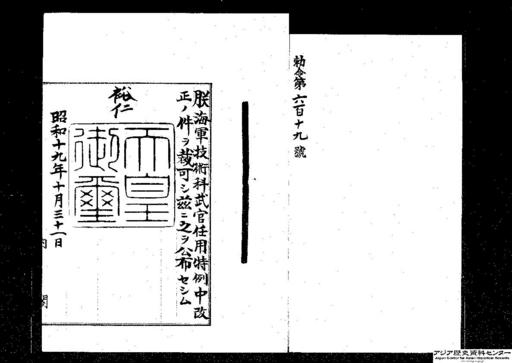 勅令第六百十九號
朕海軍技術科武官任用特例中改
正ノ件ヲ裁可シ茲ニ之ヲ公布セシム
裕仁
天皇
御璽
昭和十九年十月三十一日
内閣
アジア歴史資料センター
Japan Center for Asian Historical Records